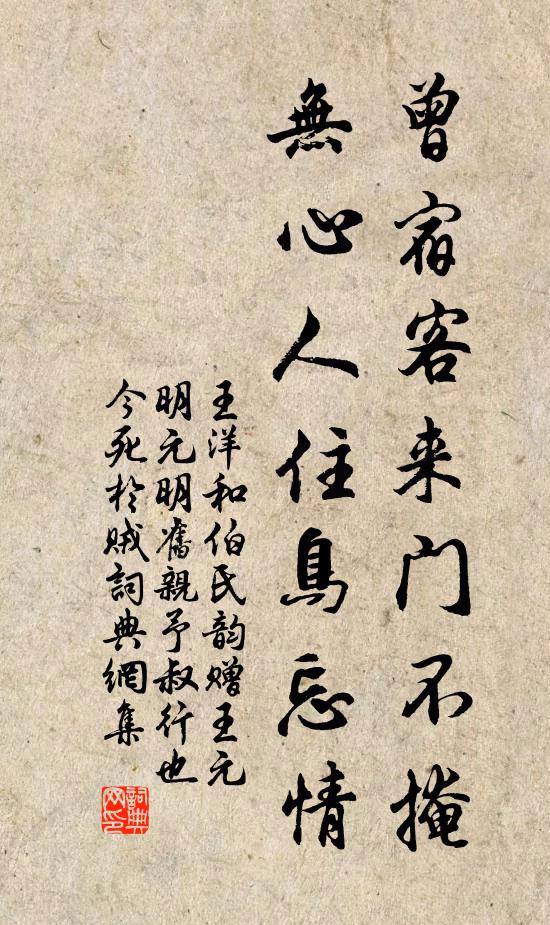 曾宿客来门不掩
無心人住鳥忘情
王洋和伯氏韵赠王元
明元明舊親予叔行也
今死於贼詞典網集
詞典网印